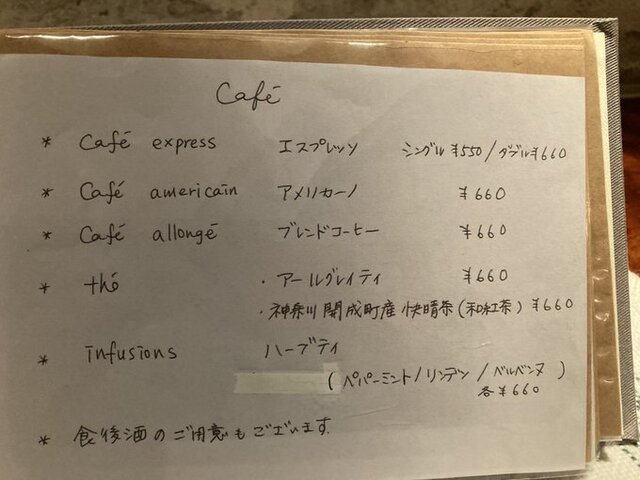 Café
* Café express エスプレッソ シングル ¥550 / ダブル ¥660
* Café americain アメリカーノ ¥660
* Café allongé ブレンドコーヒー ¥660
* thé ・アールグレイティ ¥660
・神奈川 開成町産 快晴茶 (和紅茶) ¥660
* infusions ハーブティ
( ペパーミント / リンデン / ベルベンヌ )
各 ¥660
* 食後酒のご用意もございます.